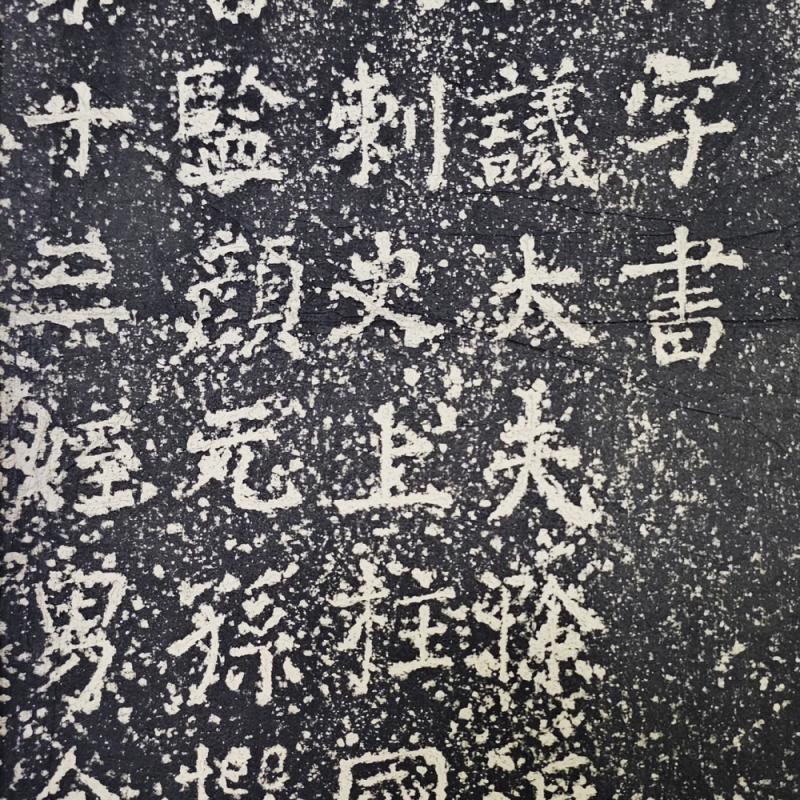 字書
議大夫除
刺史上柱國
監顏元孫撰
十三姪男